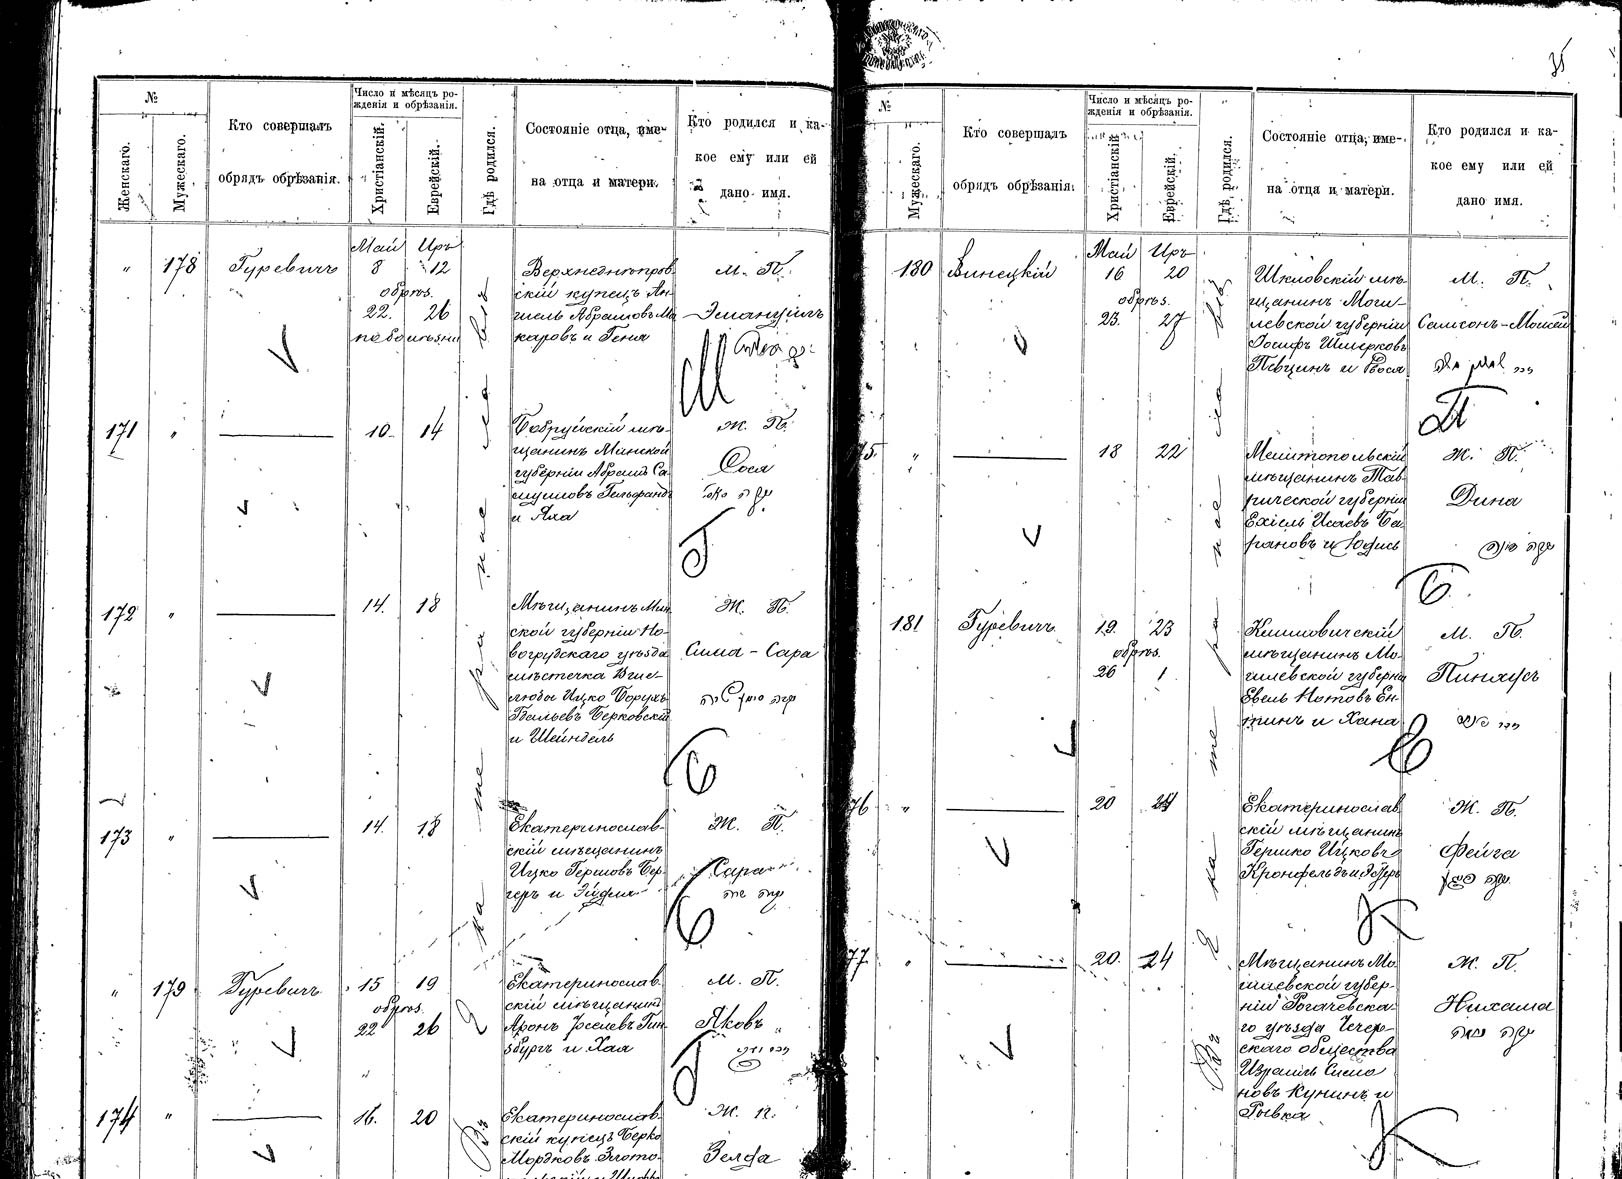 35
№
Женскаго.
Мужескаго.
Кто совершалъ
обрядъ обрѣзанія.
Число и мѣсяцъ ро-
жденія и обрѣзанія.
Христіанскій.
Еврейскій.
Гдѣ родился.
Состояніе отца, име-
на отца и матери.
Кто родился и ка-
кое ему или ей
дано имя.
"
178
Гуревичъ
Май
8
обрѣз.
22.
Иръ
12
26
Верхнеднѣпров
скій купецъ
каровъ и Геня
М. П.
Эмануилъ
М
171
"
10
14
Бобруйскій мѣ-
щанинъ Минской
губерніи Абрамъ Са-
муиловъ Гельфандъ
и Яха
Ж. П.
Сося
Г
172
"
14.
18
Мѣщанинъ Мин
ской губерніи Но-
вогрудскаго уѣзда
мѣстечка
любы Ицко Борухъ
Берковскій
и Шейндель
Ж. П.
Сима-Сара
Б
173
"
14.
18
Екатеринослав-
скій мѣщанинъ
Ицко Гершовъ Бер-
геръ и
Ж. П.
Сара
Б
"
179
Гуревичъ
15
обрѣз.
22
19
26
Екатеринослав
скій мѣщанинъ
Аронъ Іоселевъ Гин-
збургъ и Хая
М. П.
Яковъ
Г
174
"
16.
20
Екатеринослав-
скій купецъ Берко
Мордковъ Злото-
Ж. П.
Зелда
Въ Екатеринославѣ
№
Мужескаго.
Кто совершалъ
обрядъ обрѣзанія.
Число и мѣсяцъ ро-
жденія и обрѣзанія.
Христіанскій
Еврейскій.
Гдѣ родился.
Состояніе отца, име-
на отца и матери.
Кто родился и ка-
кое ему или ей
дано имя.
180
Винецкій
Май
16
обрѣз.
23.
Иръ
20
27
Шкловскій мѣ-
щанинъ Моги-
левской губерніи
Іосифъ Шмерковъ
Пѣвцинъ и Рося
М. П.
Самсонъ-Моисей
П
175
"
18
22
Мелитопольскій
мѣщанинъ Тав-
рической губерніи
Ехіель Исаевъ Ба-
рановъ и Юдись
Ж. П.
Дина
Б
181
Гуревичъ
19.
обрѣз.
26
23
1
Климовичскій
мѣщанинъ Мо-
гилевской губерніи
Евель Нотовъ Ен-
тинъ и Хана
М. П.
Пинхусъ
Е
76
"
20
24
Екатеринослав
скій мѣщанинъ
Гершко Ицковъ
Кронфельдъ и Эстеръ
Ж. П.
Фейга
К
77
"
20.
24
Мѣщанинъ Мо-
гилевской губер-
ніи Рогачевска-
го уѣзда Чечер-
скаго общества
Израиль Симо
новъ Кунинъ и
Рывка
Ж. П.
Нихама
К
Въ Екатеринославѣ